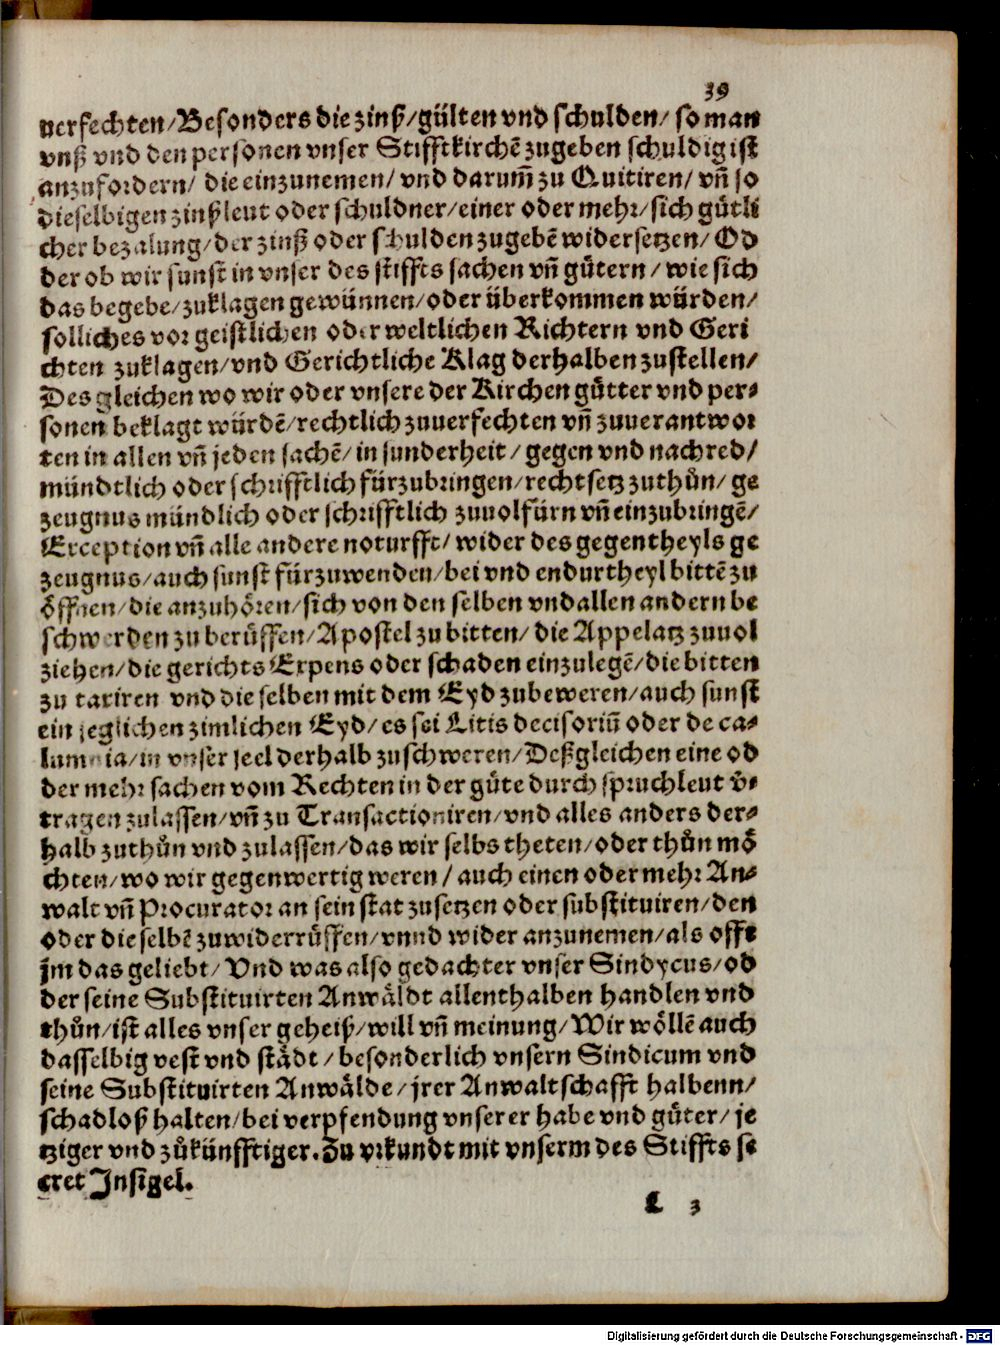 39
uerfechten/Besonders die zinß/gülten vnd schulden/ so man
vnß vnd den personen vnser Stifftkirchē zugeben schuldig ist
anzufordern/ die einzunemen/ vnd darum̄ zu Quitiren/ vn̄ so
dieselbigen zinßleut oder schuldner/einer oder mehr/sich gütli
cher bezalung/der zinß oder schulden zugebē widersetzen/ Od
der ob wir sunst in vnser des stiffts sachen vn̄ gütern/wie sich
das begebe/zuklagen gewünnen/oder überkommen würden/
solliches vor geistlichen oder weltlichen Richtern vnd Geri
chten zuklagen/vnd Gerichtliche Klag derhalben zustellen/
Des gleichen wo wir oder vnsere der Kirchen gütter vnd per-
sonen beklagt würdē/rechtlich zuuerfechten vn̄ zuuerantwor
ten in allen vn̄ jeden sachē/in sunderheit/gegen vnd nachred/
mündtlich oder schrifftlich fürzubringen/rechtsetz zuthůn/ ge
zeugnus mündlich oder schrifftlich zuuolfürn vn̄ einzubringē/
Exception vn̄ alle andere noturfft/ wider des gegentheyls ge
zeugnus/auch sunst fürzuwenden/bei vnd endurtheyl bittē zu
öffnen/die anzuhören/sich von den selben vnd allen andern be
schwerden zu berüffen/Apostel zu bitten/ die Appelatz zuuol
ziehen/die gerichts Expens oder schaden einzulegē/die bitten
zu taxiren vnd die selben mit dem Eyd zubeweren/auch sunst
ein jeglichen zimlichen Eyd/es sei Litis decisoriū oder de ca-
lumnia/in vnser seel derhalb zuschweren/Deßgleichen eine od
der mehr sachen vom Rechten in der güte durch spruchleut v̄-
tragen zulassen/vn̄ zu Transactioniren/vnd alles anders der-
halb zuthůn vnd zulassen/das wir selbs theten/oder thůn mö
chten/wo wir gegenwertig weren/ auch einen oder mehr An-
walt vn̄ Procurator an sein stat zusetzen oder substituiren/den
oder die selbē zuwiderrüffen/vnnd wider anzunemen/als offt
jm das geliebt/ Vnd was also gedachter vnser Sindycus/od
der seine Substituirten Anwäldt allenthalben handlen vnd
thůn/ist alles vnser geheiß/will vn̄ meinung/Wir wöllē auch
dasselbig vest vnd städt/besonderlich vnsern Sindicum vnd
seine Substituirten Anwälde/jrer Anwaltschafft halbenn/
schadloß halten/bei verpfendung vnserer habe vnd güter/je
tziger vnd zůkünfftiger. Zu vrkundt mit vnserm des Stiffts se
cret Insigel.
L 3
Digitalisierung gefördert durch die Deutsche Forschungsgemeinschaft - DFG